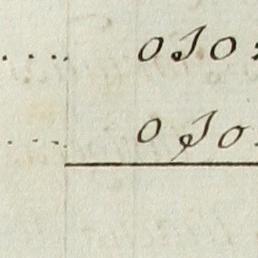 .... 010:
.... 010: